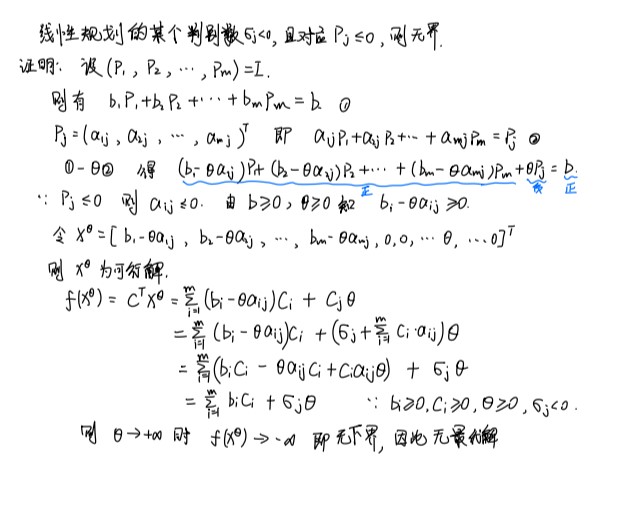 线性规划的某个判别数σj<0,且对应Pj≤0,则无界.
证明: 设(P1, P2, ⋯, Pm)=I.
则有 b1P1+b2P2+⋯+bmPm=b. ①
Pj=(a1j, a2j, ⋯, amj)^T 即 a1jP1+a2jP2+⋯+amjPm=Pj ②
①-θ② 得 (b1-θa1j)P1+(b2-θa2j)P2+⋯+(bm-θamj)Pm+θPj=b.
正 负 正
∵ Pj≤0 则 aij≤0. 由 b≥0, θ≥0 知 bi-θaij≥0.
令 X^θ=[b1-θa1j, b2-θa2j, ⋯, bm-θamj, 0,0,⋯θ,⋯0]^T
则 X^θ 为可行解.
f(X^θ)=C^TX^θ=∑_{i=1}^m(bi-θaij)Ci+Cjθ
=∑_{i=1}^m(bi-θaij)Ci+(σj+∑_{i=1}^m Ci·aij)θ
=∑_{i=1}^m(biCi-θaijCi+Ciaijθ)+σjθ
=∑_{i=1}^m biCi+σjθ ∵ bi≥0, Ci≥0, θ≥0, σj<0.
则 θ→+∞ 时 f(X^θ)→-∞ 即无下界, 因此无最优解